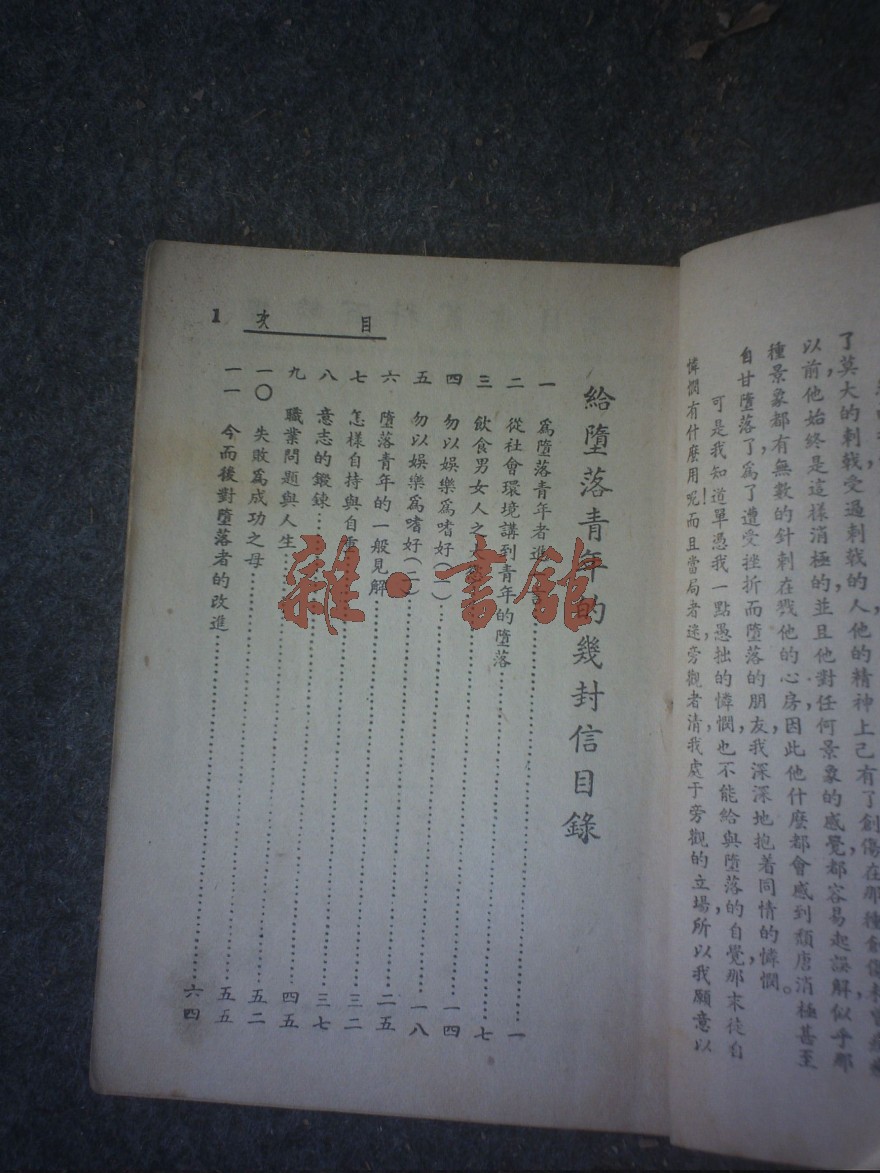 了莫大的刺戟，受過刺戟的人，他的精神上已有了創傷，在那種創傷未曾
以前，他始終是這樣消極的，並且他對任何景象的感覺，都容易起誤解，似乎那
種景象都有無數的針刺在戮他的心房，因此他什麼都會感到頹唐消極甚至
自甘墮落了，爲了遭受挫折而墮落的朋友，我深深地抱着同情的憐憫。
可是我知道單憑我一點愚拙的憐憫，也不能給與墮落的自覺，那末徒自
憐憫有什麼用呢！而且當局者迷，旁觀者清，我處于旁觀的立場，所以我願意以
目次 1
給墮落青年的幾封信目錄
一 爲墮落青年者進……一
二 從社會環境講到青年的墮落……七
三 飲食男女人之……一四
四 勿以娛樂爲嗜好（一）……一八
五 勿以娛樂爲嗜好（二）……二五
六 墮落青年的一般見解……三二
七 怎樣自持與自重……三七
八 意志的鍛鍊……四五
九 職業問題與人生……五二
一〇 失敗爲成功之母……五五
一一 今而後對墮落者的改進……六四
雜·書館